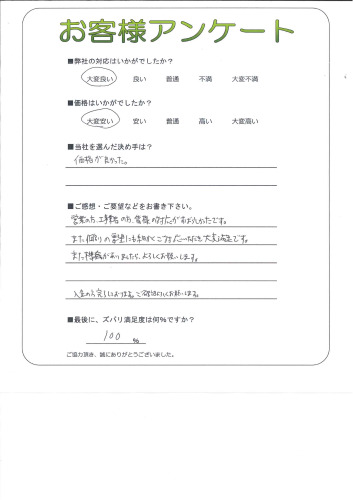 お客様アンケート
■弊社の対応はいかがでしたか？
大変良い 良い 普通 不満 大変不満
■価格はいかがでしたか？
大変安い 安い 普通 高い 大変高い
■当社を選んだ決め手は？
価格が良かった。
■ご感想・ご要望などをお書き下さい。
営業の方、工事の方、皆様の対応が良かったです。
また、の要望にも細かくご対応いただき大変満足です。
また機会がありましたら、よろしくお願いします。
■最後に、ズバリ満足度は何％ですか？
100 ％
ご協力頂き、誠にありがとうございました。